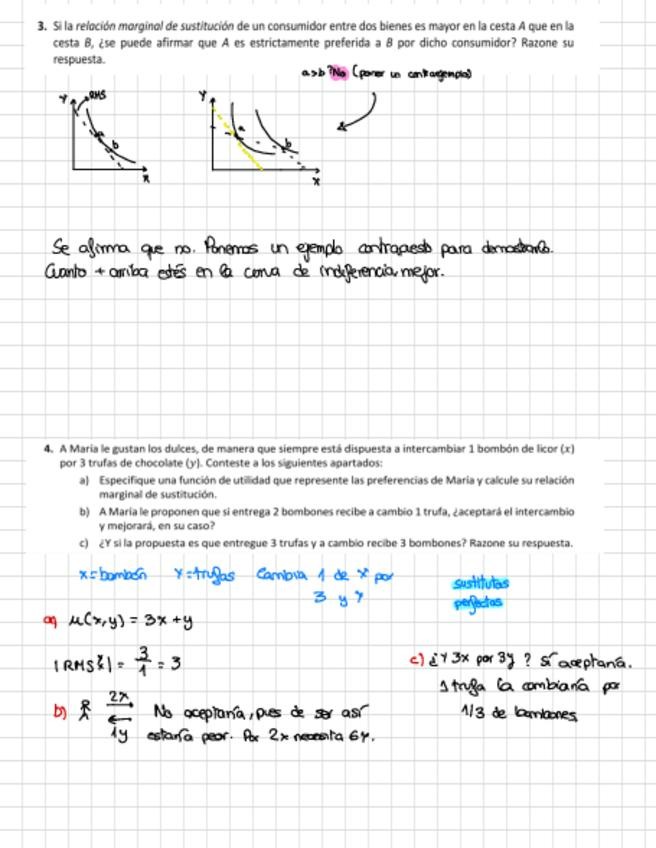 3. Si la relación marginal de sustitución de un consumidor entre dos bienes es mayor en la cesta A que en la
cesta B, ¿se puede afirmar que A es estrictamente preferida a B por dicho consumidor? Razone su
respuesta.
a>b? No (poner un contraejemplo)
Y RMS
a
b
x
Y
a
b
x
Se afirma que no. Ponemos un ejemplo contrapuesto para demostrarlo.
Cuanto + arriba estés en la curva de indiferencia, mejor.
4. A María le gustan los dulces, de manera que siempre está dispuesta a intercambiar 1 bombón de licor (x)
por 3 trufas de chocolate (y). Conteste a los siguientes apartados:
a) Especifique una función de utilidad que represente las preferencias de María y calcule su relación
marginal de sustitución.
b) A María le proponen que si entrega 2 bombones recibe a cambio 1 trufa, ¿aceptará el intercambio
y mejorará, en su caso?
c) ¿Y si la propuesta es que entregue 3 trufas y a cambio recibe 3 bombones? Razone su respuesta.
x=bombón Y=trufas Cambia 1 de x por
3 y?
sustitutos
perfectos
a) μ(x,y) = 3x + y
|RMS| = 3/1 = 3
b) 2x
1y
No aceptaría, pues de ser así
estaría peor. Por 2x necesita 6y.
c) ¿Y 3x por 3y? Sí aceptaría.
1 trufa la cambiaría por
1/3 de bombones